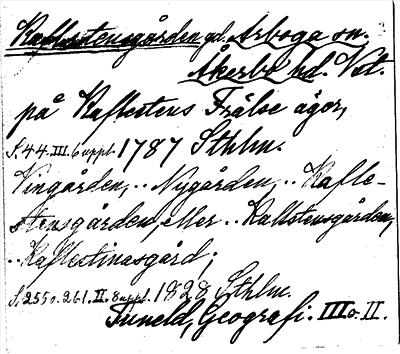 Kaflestensgården gd. Arboga sn.
Åkerbo hd. Vstl.
på Kaflestens Frälse ägor,
S. 44. III. 6 uppl. 1787 Sthlm.
Vingården, .. Nygården, .. Kafle-
stensgården, eller .. Kallstensgården,
.. Kaflestinasgård;
S. 255 o. 261. II. 8 uppl. 1828 Sthlm.
Tuneld, Geografi. III o. II.